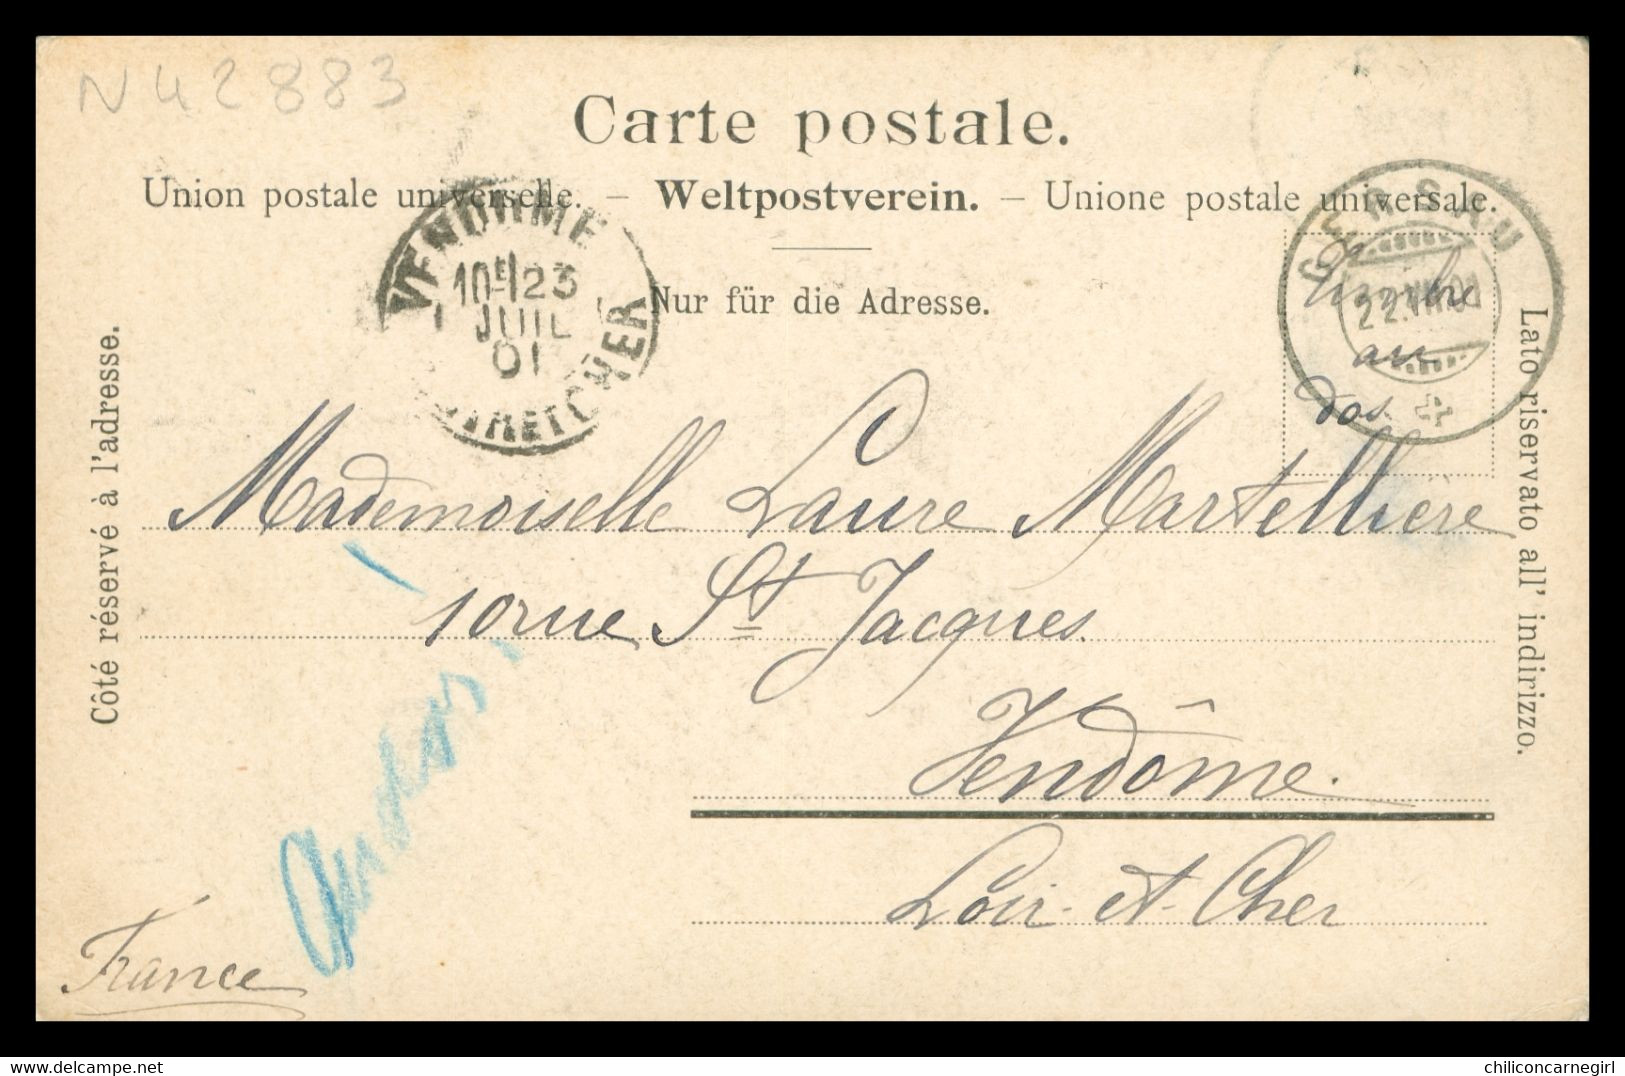 N42883
Carte postale.
Union postale universelle. – Weltpostverein. – Unione postale universale.
Nur für die Adresse.
VENDÔME
10E 23
JUIL
01
LOIR-ET-CHER
GERSAU
22.VII.01
Timbre
au
dos.
Côté réservé à l'adresse.
Lato riservato all' indirizzo.
Mademoiselle Laure Martelliere
10 rue St Jacques.
Vendôme.
Loir-et-Cher
France
www.delcampe.net
chiliconcarnegirl